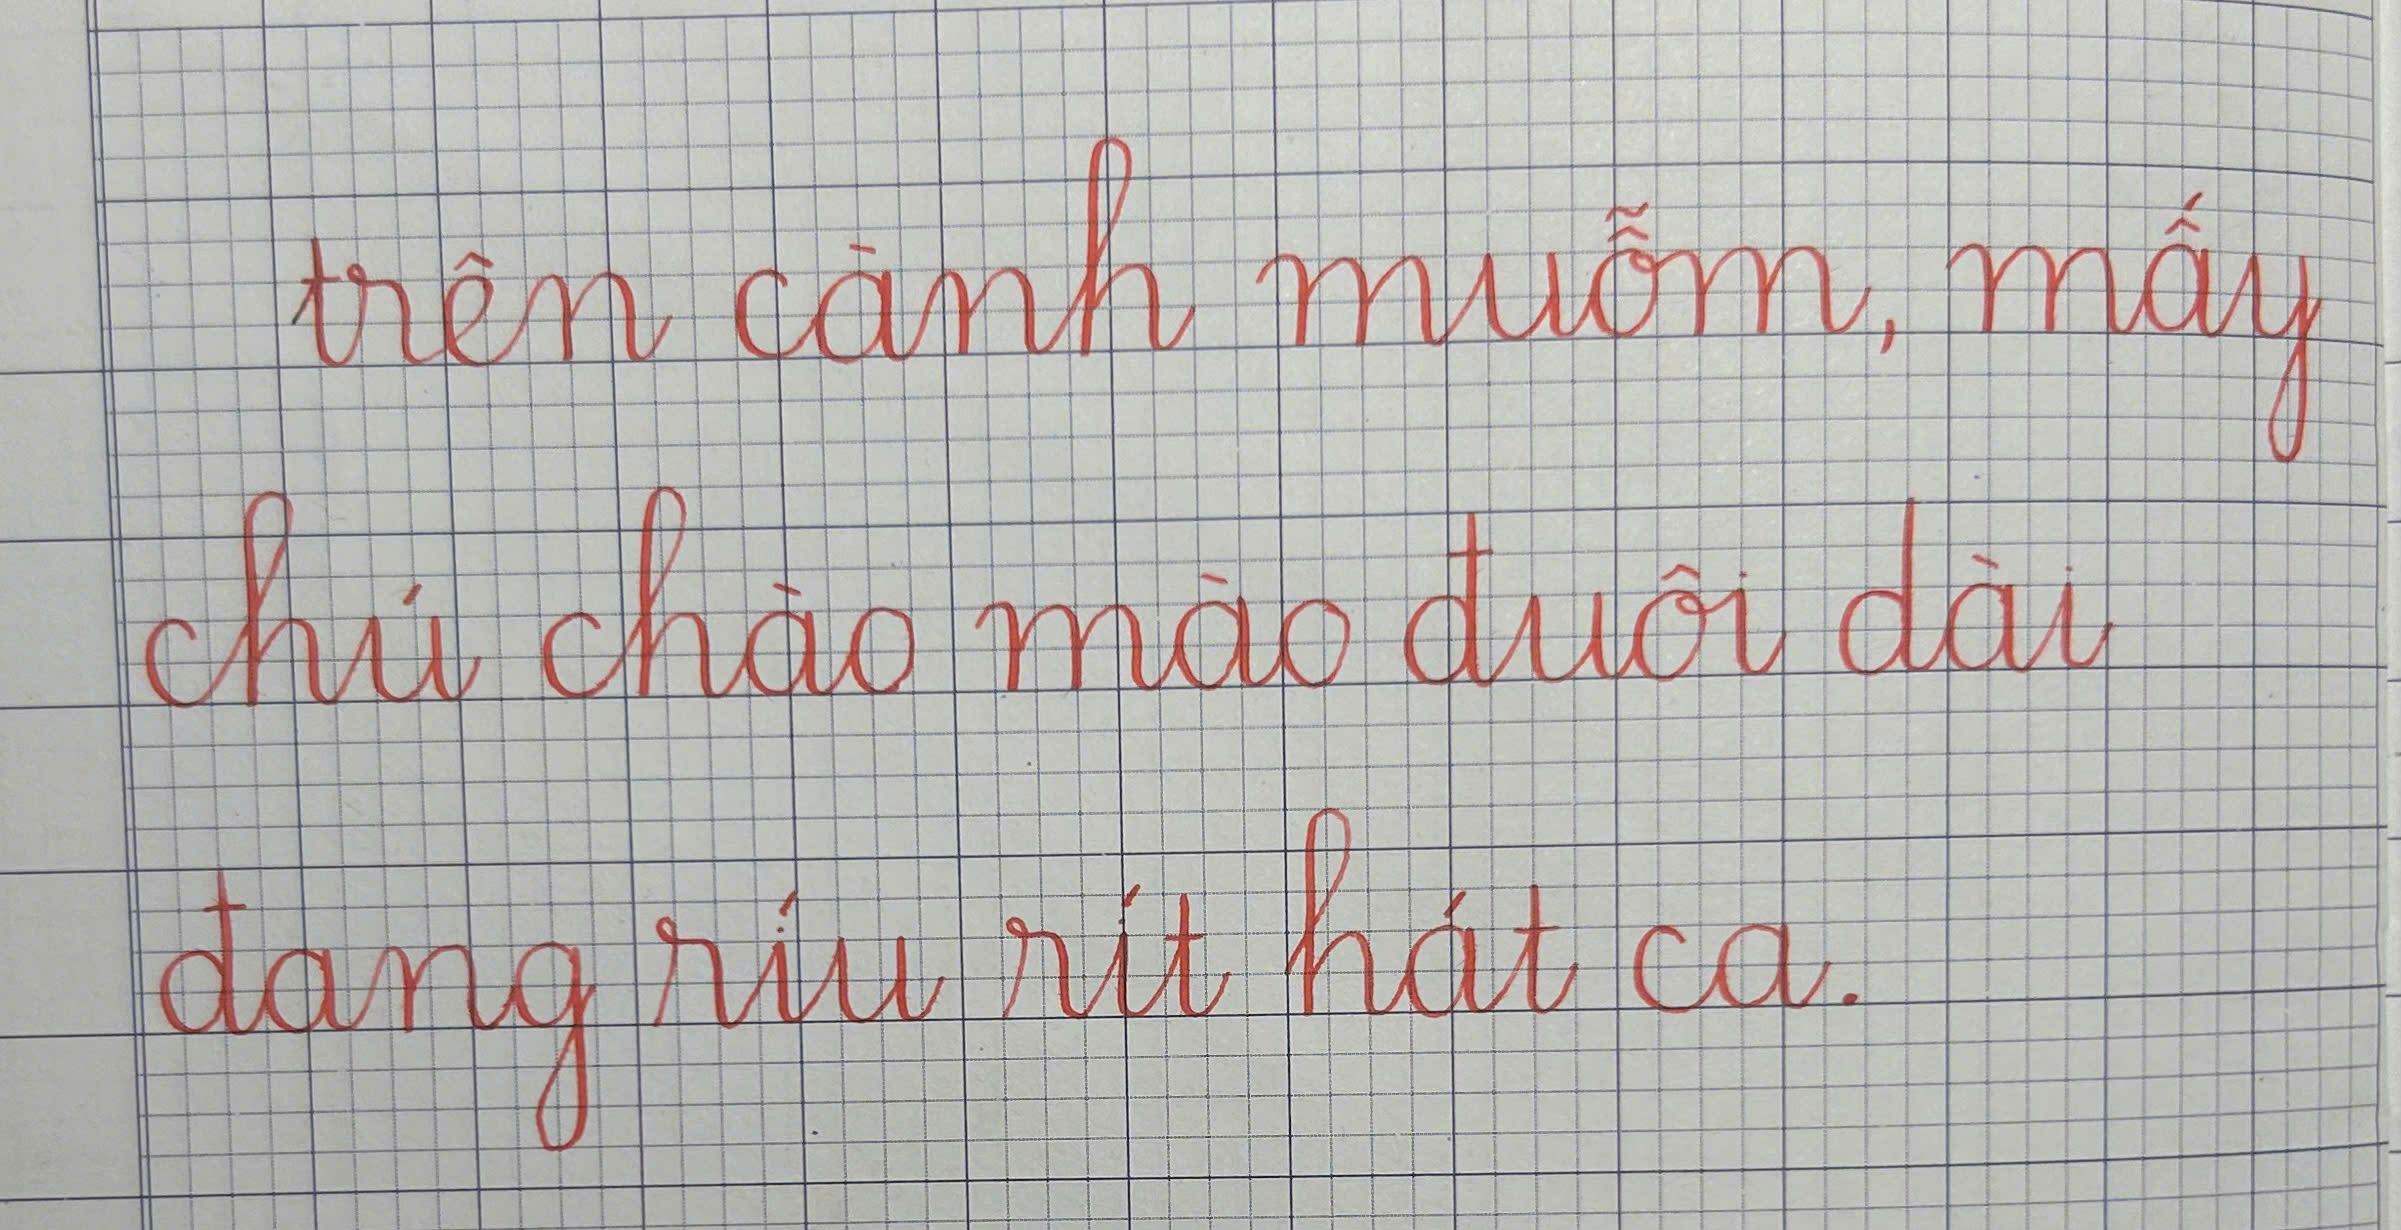 trên cành muỗm, mấy
chú chào mào đuôi dài
đang ríu rít hát ca.